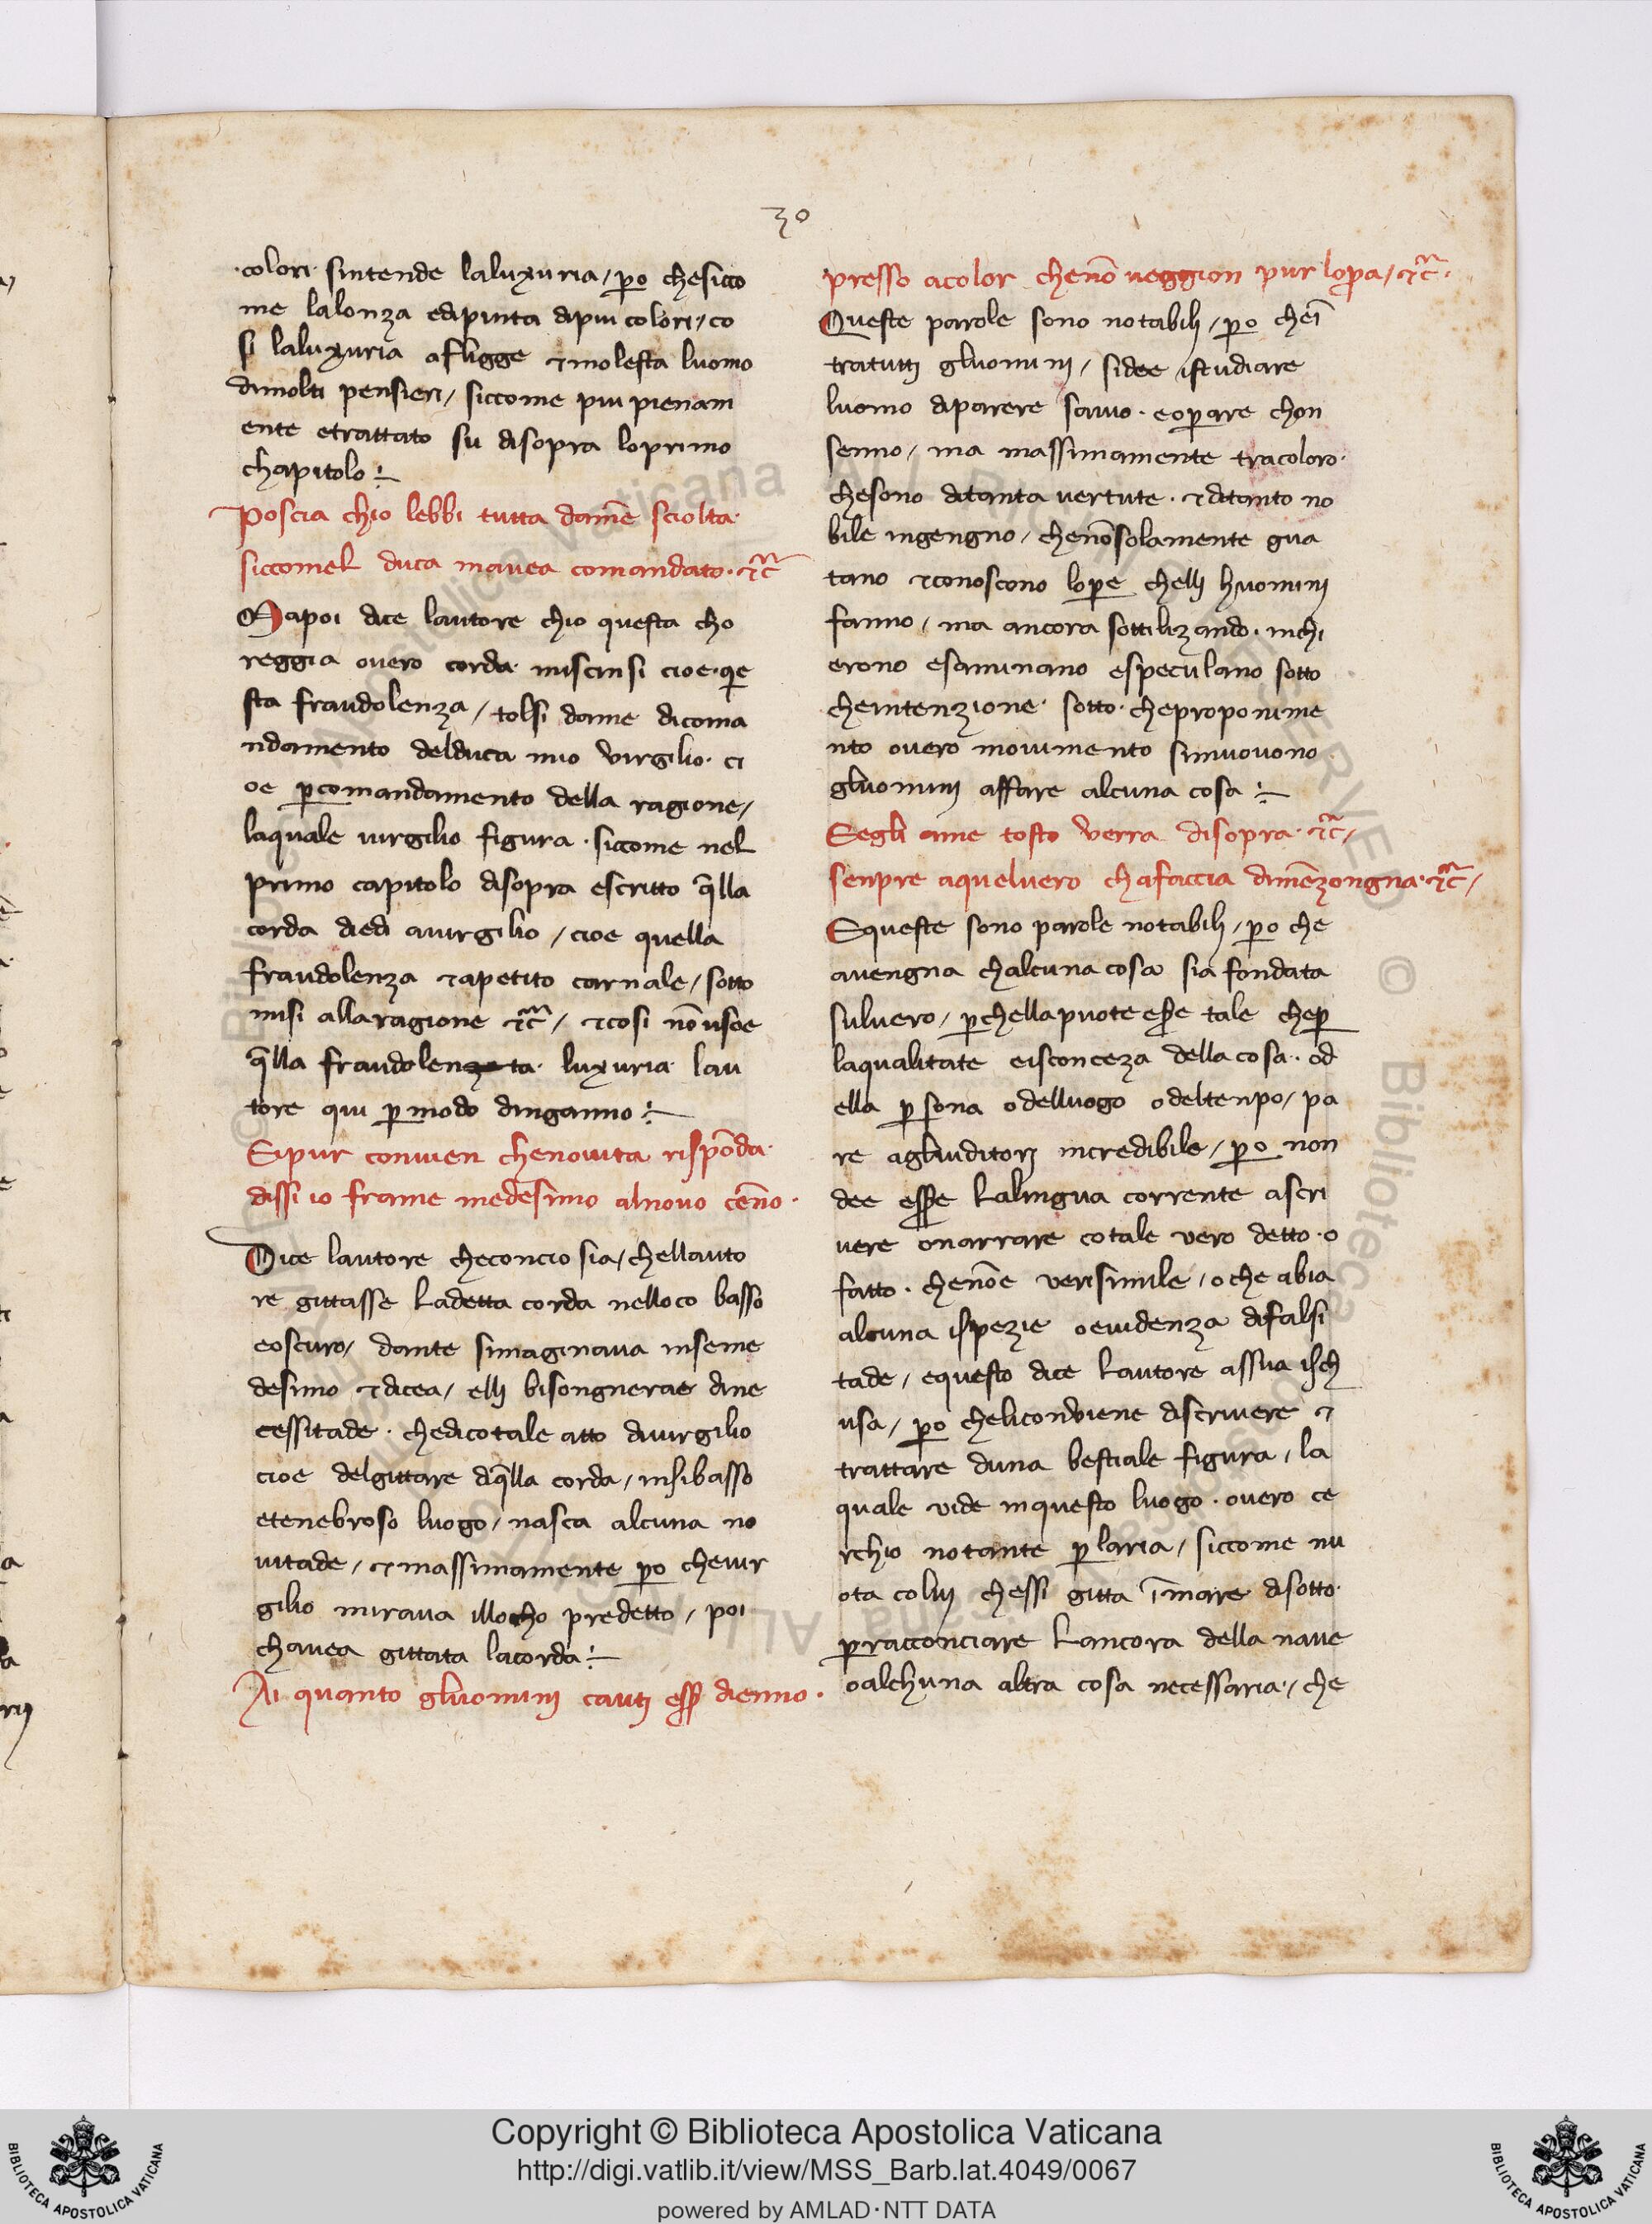 30
·colori· sintende laluxuria / ꝑo chesicco
me lalonza edipinta dipiu colori / co
si laluxuria afligge ⁊molesta luomo
dimolti pensieri / siccome piu pienam
ente etrattato su disopra loprimo
chapitolo ÷
Poscia chio lebbi tutta damē sciolta·
siccomel duca mauea comandato· ⁊c̄
Dapoi dice lautore chio questa cho
reggia ouero corda miscinsi cioe· q̄e
sta fraudolenza / tolsi dame dicoma
ndamento delduca mio virgilio· ci
oe ꝑcomandamento della ragione /
laquale uirgilio figura · siccome nel
primo capitolo disopra escritto q̄lla
corda diedi auirgilio / cioe quella
fraudolenza ⁊apetito carnale / sotto
misi allaragione ⁊c̄ / ⁊cosi nō usoe
q̄lla fraudolenzata· luxuria lau
tore qui ꝑ modo dinganno ÷
Eipur conuien chenouita rispōda·
dissi io frame medesimo alnouo cēno·
Dice lautore checoncio sia / chellauto
re gittasse ladetta corda nelloco basso
eoscuro / dante simaginaua inseme
desimo ⁊dicea / ellj bisongnerae dine
cessitade · chedicotale atto diuirgilio
cioe delgittare dq̄lla corda / insibasso
etenebroso luogo / nasca alcuna no
uitade / ⁊massimamente ꝑo cheuir
gilio miraua illocho predetto / poi
chauea gittata lacorda ÷
Ai quanto gluominj cautj esꝑ dienno·
presso acolor chenō ueggion pur loꝑa / ⁊c̄·
Queste parole sono notabilj / ꝑo cheī
tratuttj gluominj / sidee istudiare
luomo diparere sauio · eoꝑare chon
senno / ma massimamente tracoloro·
chesono ditanta uertute · ⁊ditanto no
bile ingengno / chenōsolamente gua
tano ⁊conoscono loꝑe chellj huominj
fanno / ma ancora sottilizando· inchi
erono esaminano especulano sotto
cheintenzione· sotto· cheproponime
nto ouero mouimento simuouono
gluominj affare alcuna cosa ÷
Eegli ame tosto verra disopra· ⁊c̄ /
senpre aqueluero chafaccia dimēzongna· ⁊c̄ /
Equeste sono parole notabilj / ꝑo che
auengna chalcuna cosa sia fondata
suluero / ꝑchellapuote esꝑe tale cheꝑ
laqualitate eisconceza della cosa· od
ella ꝑsona odelluogo odeltenpo / pa
re agluditorj incredibile / ꝑo non
dee esꝑe lalingua corrente ascri
uere onarrare cotale vero detto · o
fatto · chenōe verisimile / oche abia
alcuna ispezie oeuidenza difalsi
tade / equesto dice lautore assua isch
usa / ꝑo cheliconviene discriuere ⁊
trattare duna bestiale figura / la
quale vide inquesto luogo · ouero ce
rchio notante ꝑlaria / siccome nu
ota coluj chessi gitta ī mare disotto·
ꝑracconciare lancora della naue
oalchuna altra cosa necessaria· / che
Copyright © Biblioteca Apostolica Vaticana
http://digi.vatlib.it/view/MSS_Barb.lat.4049/0067
powered by AMLAD·NTT DATA
BIBLIOTECA APOSTOLICA VATICANA
BIBLIOTECA APOSTOLICA VATICANA